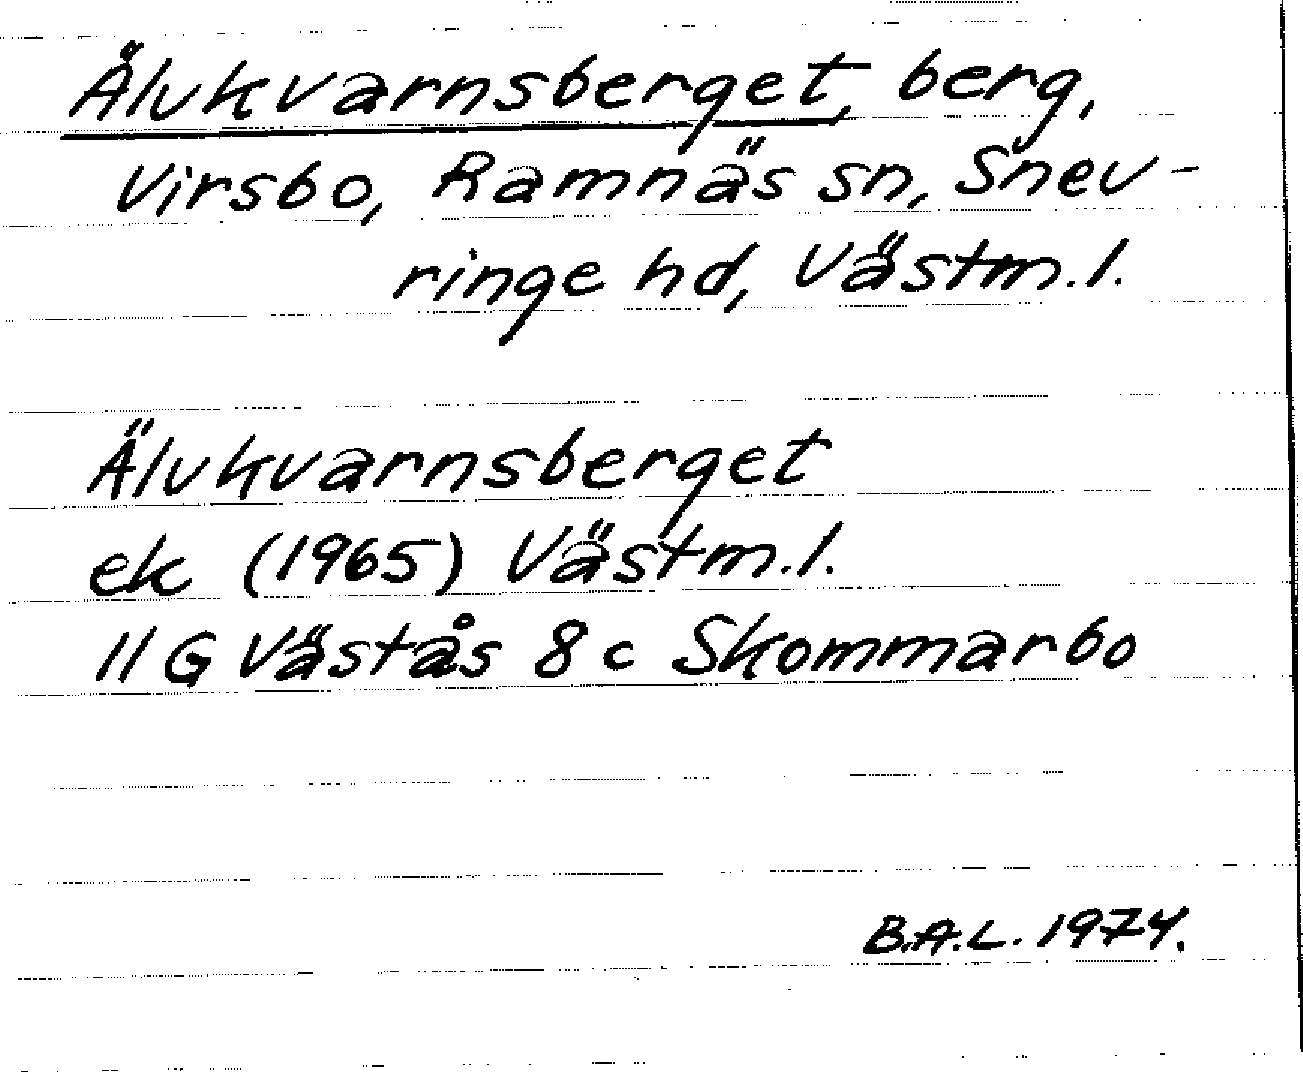 Älvkvarnsberget, berg,
Virsbo, Ramnäs sn, Snev-
ringe hd, Västm.l.
Älvkvarnsberget
ek (1965) Västm.l.
11 G Västås 8 c Skommarbo
B.A.L. 1974.